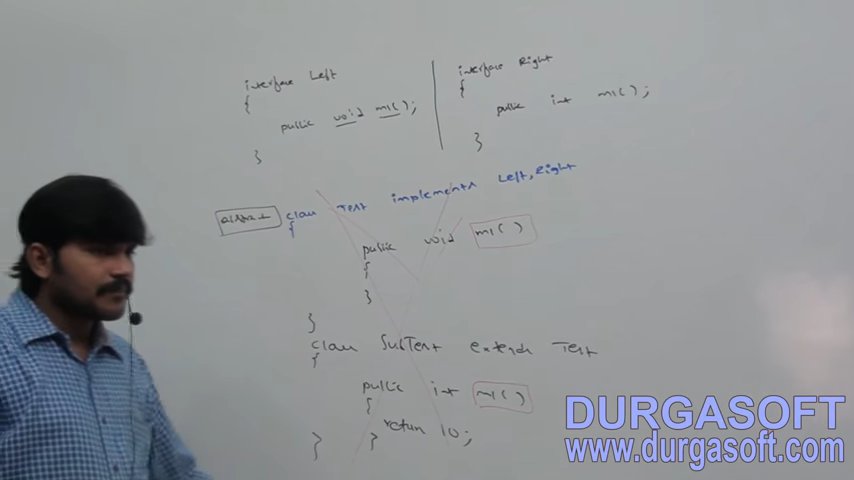 interface Left
{
public void m1( );
}
interface Right
{
public int m1( );
}
abstract class Test implements Left, Right
{
public void m1( )
{
}
}
class SubTest extends Test
{
public int m1( )
{
return 10;
}
}
DURGASOFT
www.durgasoft.com